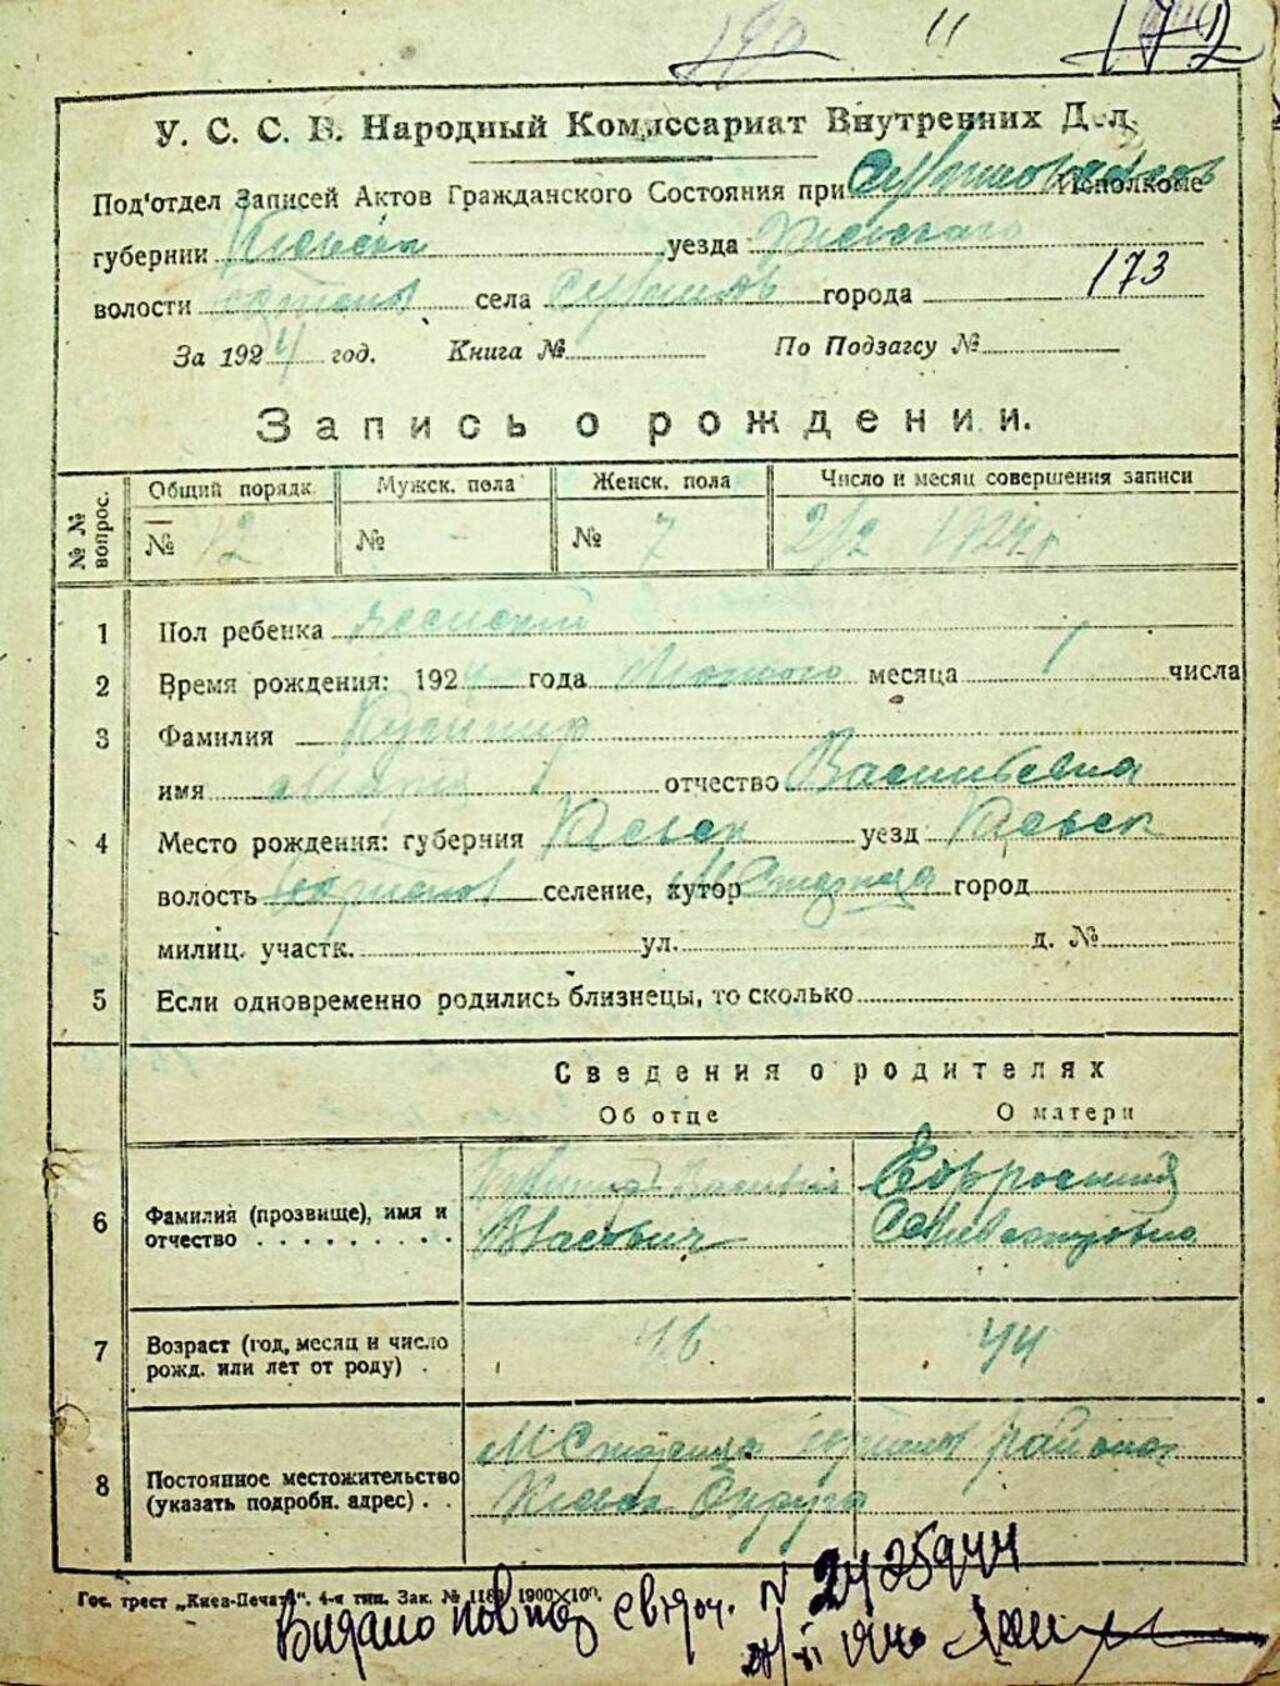 172
У. С. С. Р. Народный Комиссариат Внутренних Дел.
Под'отдел Записей Актов Гражданского Состояния при Исполкоме
губернии Киевск уезда Киевского
волости села города 173
За 1924 год. Книга № По Подзагсу №
Запись о рождении.
№№ вопрос. Общий порядк. Мужск. пола Женск. пола Число и месяц совершения записи
№ 12 № - № 7 2/2 1924 г
1 Пол ребенка женский
2 Время рождения: 1924 года месяца 1 числа
3 Фамилия Кушнир
имя Мария отчество Васильевна
4 Место рождения: губерния Киевск уезд Киевск
волость селение, хутор город
милиц. участк. ул. д. №
5 Если одновременно родились близнецы, то сколько
Сведения о родителях
Об отце О матери
6 Фамилия (прозвище), имя и отчество Кушнир Василий Власович Ефросиния Селивестровна
7 Возраст (год, месяц и число рожд. или лет от роду) 46 44
8 Постоянное местожительство (указать подробн. адрес) района
Киевск Округа
Гос. трест „Киев-Печать". 4-я тип. Зак. № 1900×100.
Видано повтор свідоч. № 2425944